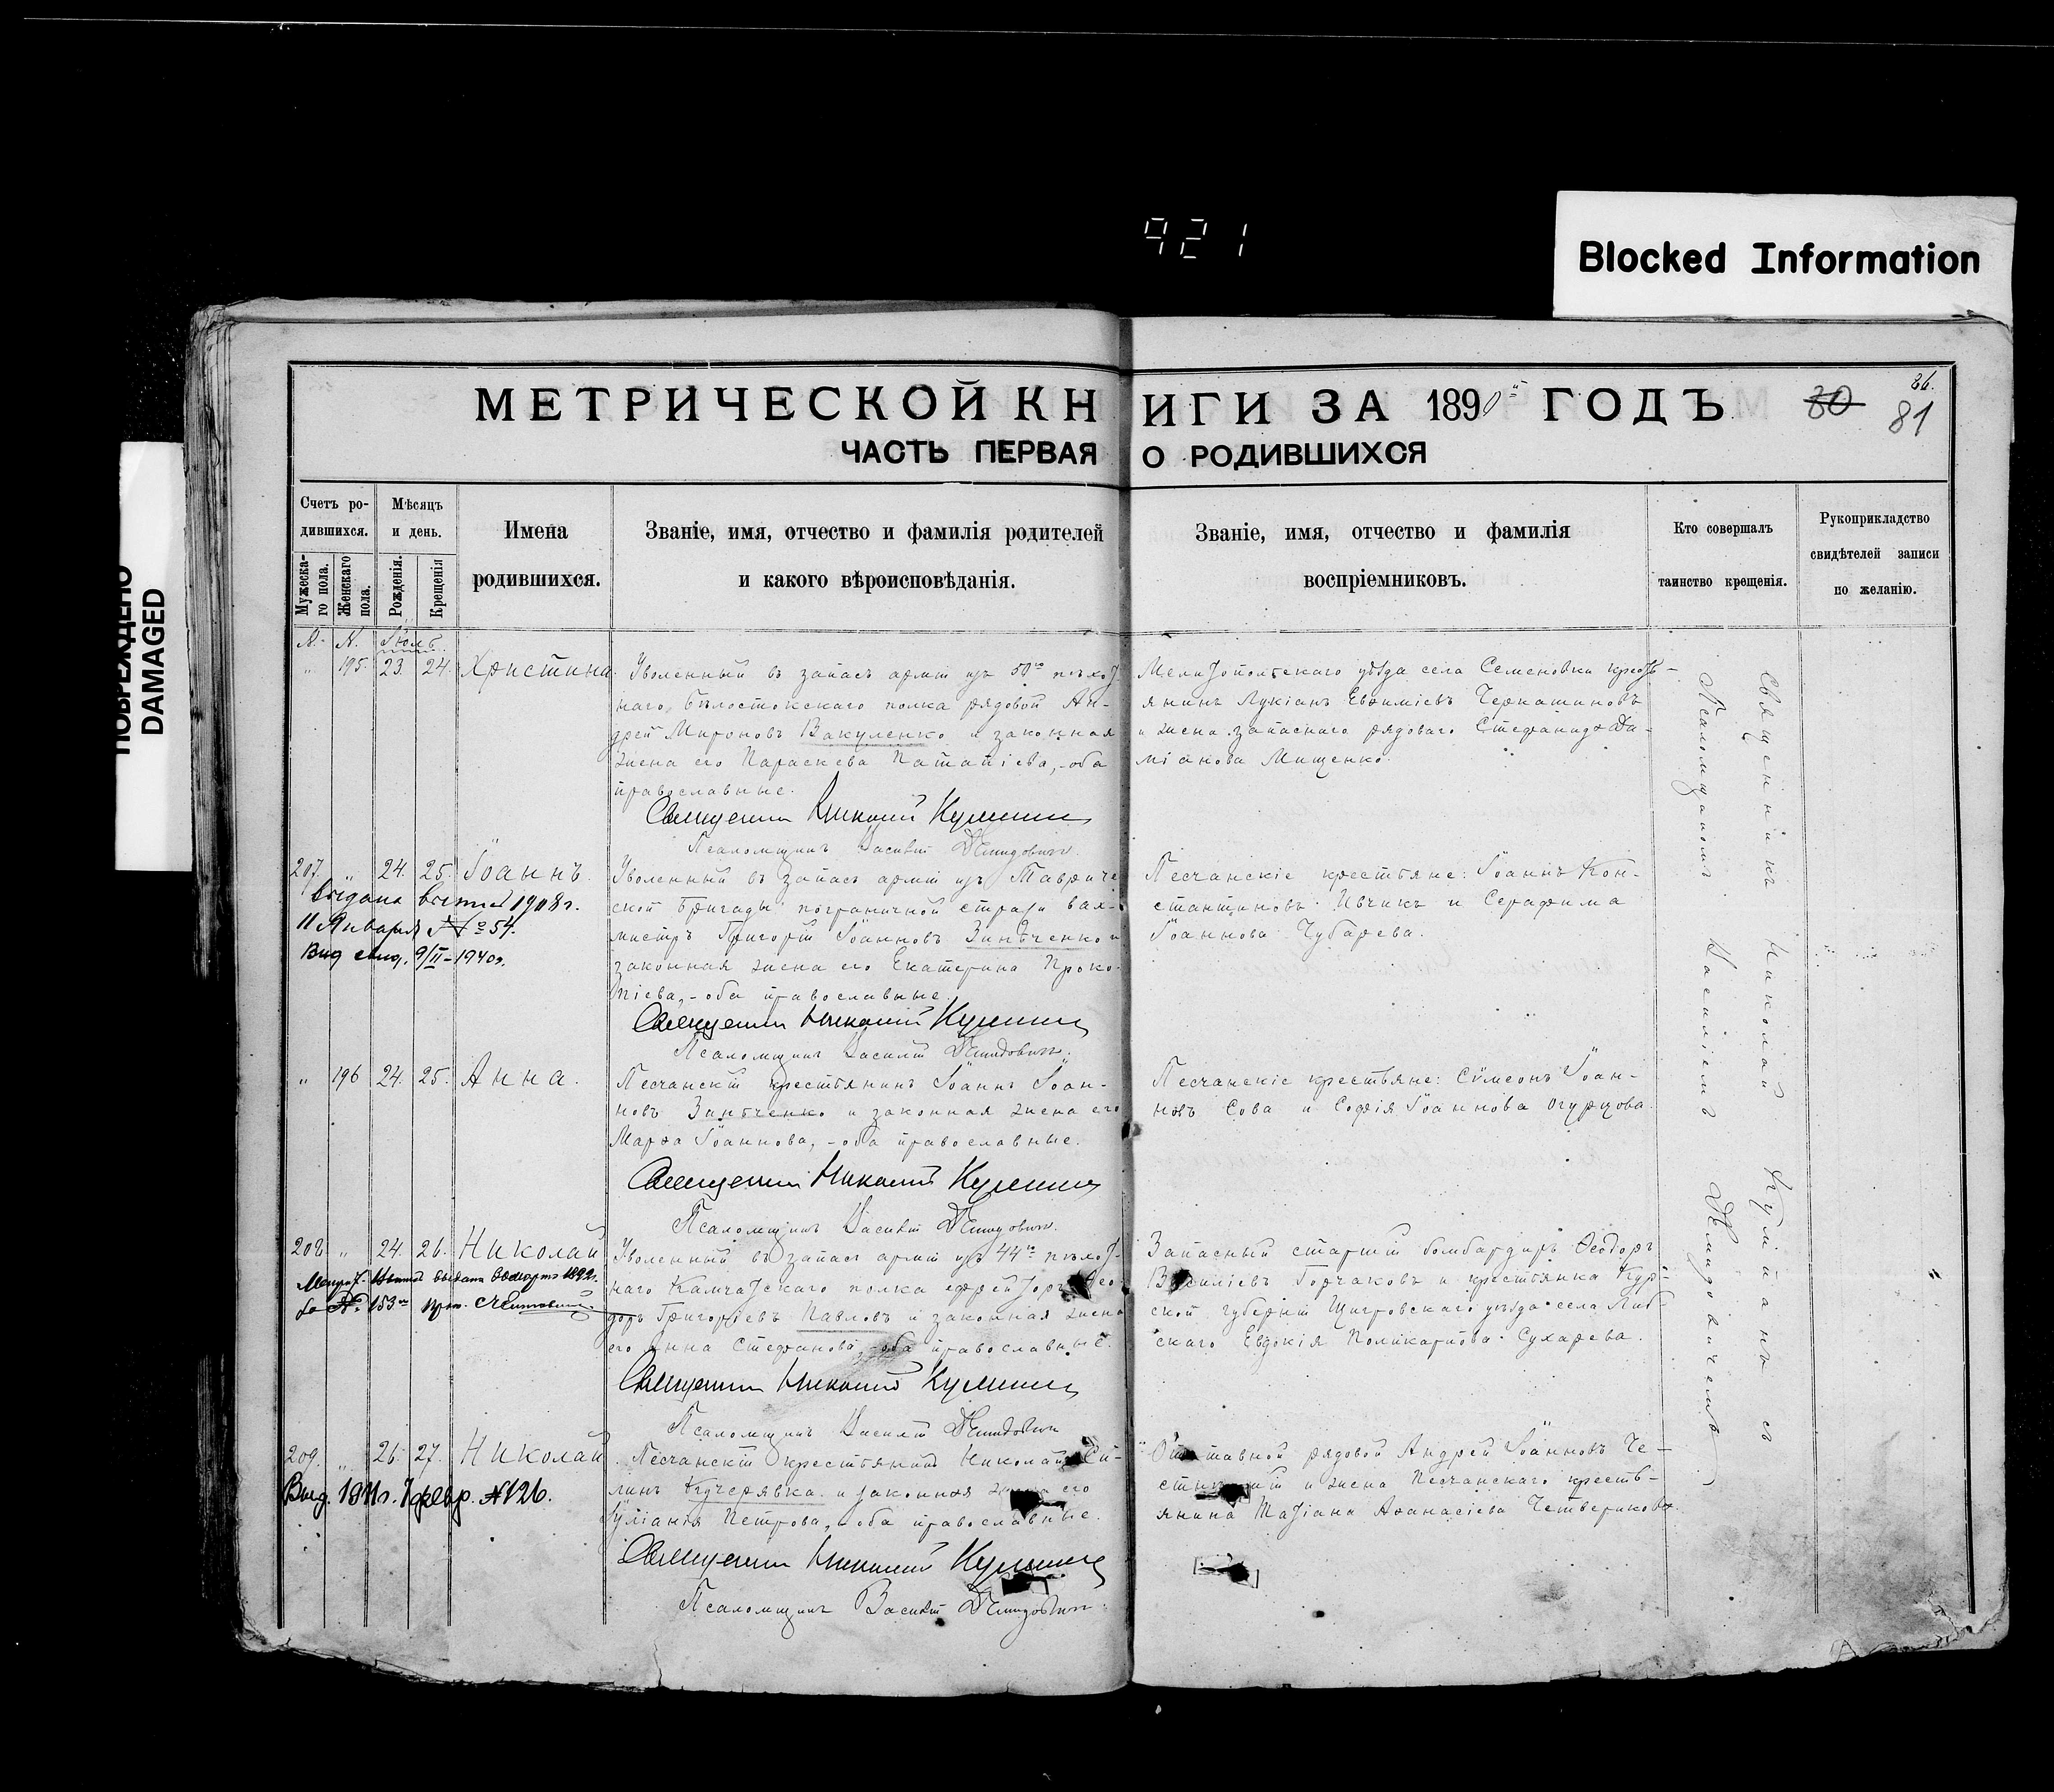 921
Blocked Information
ПОВРЕЖДЕНО
DAMAGED
МЕТРИЧЕСКОЙ КНИГИ ЗА 1890й ГОДЪ
30
81
ЧАСТЬ ПЕРВАЯ О РОДИВШИХСЯ
Счетъ ро-
дившихся.
Мужеска-
го пола.
Женскаго
пола.
Мѣсяцъ
и день.
Рожденія.
Крещенія
Имена
родившихся.
Званіе, имя, отчество и фамилія родителей
и какого вѣроисповѣданія.
Званіе, имя, отчество и фамилія
воспріемниковъ.
Кто совершалъ
таинство крещенія.
Рукоприкладство
свидѣтелей записи
по желанію.
№ № Іюль
" 195. 23. 24. Христина.
Уволенный въ запасъ арміи изъ 50го пѣхот-
наго Бѣлостокскаго полка рядовой Ан-
дрей Мироновъ Вакуленко и законная
жена его Параскева Патапіева, - оба
православные.
Священникъ Николай
Псаломщикъ Василій Демидовичъ
Мелитопольскаго уѣзда села Семеновки кресть-
янинъ Лукіанъ Евѳиміевъ
и жена запаснаго рядоваго Стефанида Да-
міанова Мищенко.
207. " 24. 25. Іоаннъ.
Выдана
11 Января № 54.
Выд свид. 9/II-1940г.
Уволенный въ запасъ арміи изъ Тавриче
ской бригады пограничной стражи вах-
мистръ Григорій Іоанновъ Зинѣченко и
законная жена его Екатерина Проко-
піева, - оба православные.
Священникъ Николай
Псаломщикъ Василій Демидовичъ.
Песчанскіе крестьяне: Іоаннъ Кон-
стантиновъ Ивчикъ и Серафима
Іоаннова Чубарева.
" 196 24. 25. Анна.
Песчанскій крестьянинъ Іоаннъ Іоан-
новъ Зинѣченко и законная жена его
Марѳа Іоаннова, - оба православные.
Священникъ Николай
Псаломщикъ Василій Демидовичъ.
Песчанскіе крестьяне: Сѵмеонъ Іоан-
новъ Сова и Софія Іоаннова Огурцова.
208. " 24. 26. Николай
выдана 1892г.
за № 153
Уволенный въ запасъ арміи изъ 44го пѣхот-
наго Камчатскаго полка ефрейторъ Ѳео-
доръ Григоріевъ Павловъ и законная жена
его Анна Стефанова, - оба православные.
Священникъ Николай
Псаломщикъ Василій Демидовичъ
Запасный старшій бомбардиръ Ѳеодоръ
Василіевъ Горчаковъ и крестьянка Кур-
ской губерніи Щигровскаго уѣзда села
скаго Евдокія Поликарпова Сухарева.
209. " 26. 27. Николай
Выд. 1911г. 7 февр. №126.
Песчанскій крестьянинъ Николай
Кучерявка и законная жена его
Іуліанія Петрова, - оба православные.
Священникъ Николай
Псаломщикъ Василій Демидовичъ
Отставной рядовой Андрей Іоанновъ Че-
и жена Песчанскаго кресть-
янина Татіана Аѳанасіева Четверикова.
Священникъ Николай Кулмянъ съ
Псаломщикомъ Василіемъ Демидовичемъ